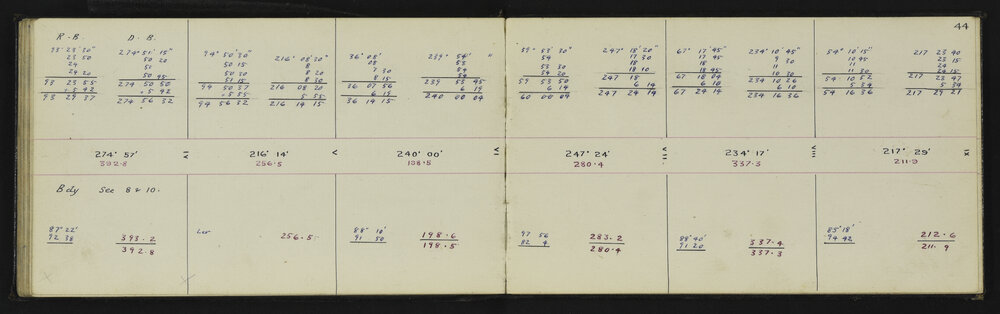 44
R. B. D. B.
93° 23' 30" 274° 51' 15"
23 50 50 20
24 50
24 20 50 45
93 23 55 274 50 50
+5 42 +5 42
93 29 37 274 56 32
94° 50' 30" 216° 08' 30"
50 15 8
50 30 8 20
51 15 8 30
94 50 37 216 08 20
5 55 5 55
94 56 32 216 14 15
36° 08' 239° 54' "
08 53
7 30 54
8 15 54
36 07 56 239 53 45
6 19 6 19
36 14 15 240 00 04
59° 53' 30" 247° 18' 20"
54 17 30
53 30 18
54 20 18 10
59 53 50 247 18
6 14 6 14
60 00 04 247 24 14
67° 17' 45" 234° 10' 45"
17 45 9 30
18 11
18 45 10 30
67 18 04 234 10 26
6 10 6 10
67 24 14 234 16 36
54° 10' 15" 217 23 40
10 45 23 15
11 24
11 30 24 15
54 10 52 217 23 47
5 34 5 34
54 16 36 217 29 21
274° 57' IV 216° 14' V 240° 00' VI 247° 24' VII 234° 17' VIII 217° 29' IX
392.8 256.5 198.5 280.4 337.3 211.9
Bdy See 8 & 10.
87° 22' 393.2
92 38 392.8
256.5
88° 10' 198.6
91 50 198.5
97 56 283.2
82 4 280.4
88° 40' 337.4
91 20 337.3
85° 18' 212.6
94 42 211.9